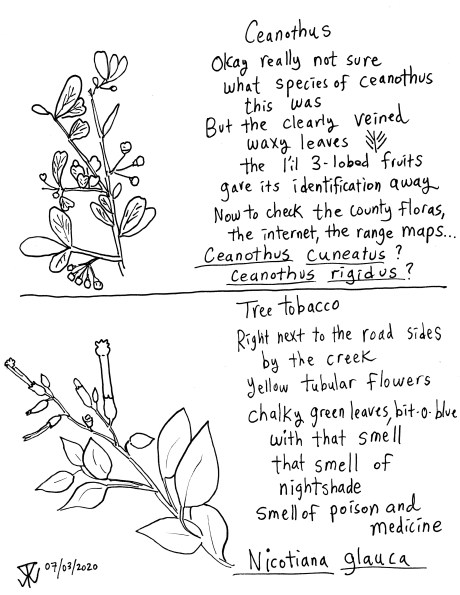 Ceanothus
Okay really not sure
what species of ceanothus
this was
But the clearly veined
waxy leaves
the l'il 3-lobed fruits
gave its identification away
Now to check the county floras,
the internet, the range maps...
Ceanothus cuneatus ?
Ceanothus rigidus ?
Tree tobacco
Right next to the road sides
by the creek
Yellow tubular flowers
Chalky green leaves, bit-o-blue
with that smell
that smell of
nightshade
Smell of poison and
medicine
Nicotiana glauca
07/03/2020